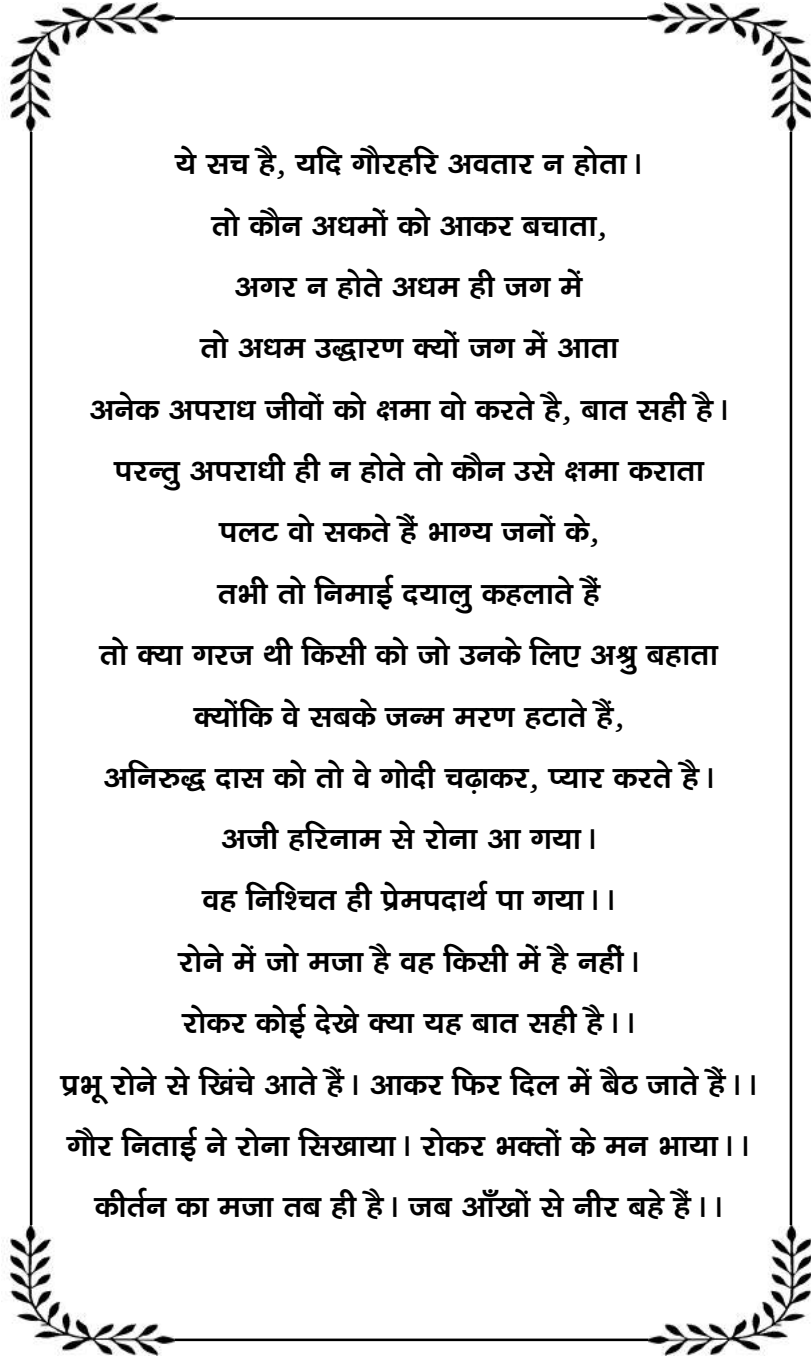 ये सच है, यदि गौरहरि अवतार न होता।
तो कौन अधमों को आकर बचाता,
अगर न होते अधम ही जग में
तो अधम उद्धारण क्यों जग में आता
अनेक अपराध जीवों को क्षमा वो करते है, बात सही है।
परन्तु अपराधी ही न होते तो कौन उसे क्षमा कराता
पलट वो सकते हैं भाग्य जनों के,
तभी तो निमाई दयालु कहलाते हैं
तो क्या गरज थी किसी को जो उनके लिए अश्रु बहाता
क्योंकि वे सबके जन्म मरण हटाते हैं,
अनिरुद्ध दास को तो वे गोदी चढ़ाकर, प्यार करते है।
अजी हरिनाम से रोना आ गया।
वह निश्चित ही प्रेमपदार्थ पा गया।।
रोने में जो मजा है वह किसी में है नहीं।
रोकर कोई देखे क्या यह बात सही है।।
प्रभू रोने से खिंचे आते हैं। आकर फिर दिल में बैठ जाते हैं।।
गौर निताई ने रोना सिखाया। रोकर भक्तों के मन भाया।।
कीर्तन का मजा तब ही है। जब आँखों से नीर बहे हैं।।